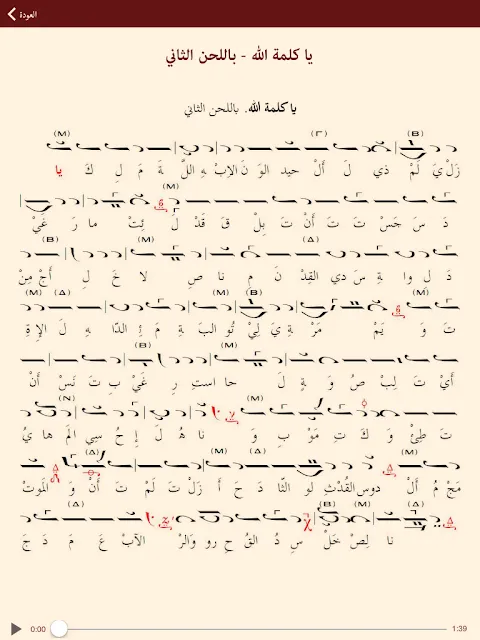 العودة
يا كلمة الله - باللحن الثاني
يا كلمة الله. باللحن الثاني
يا كَ لِ مَ ةَ اللَّ هِ الاِبْ نَ الوَ حيد أَلْ لَ ذي لَمْ يَ زَلْ
غَيْ رَ ما ئِتْ لَ قَدْ قَ بِلْ تَ أَنْ تَ تَ جَسْ سَ دَ
مِنْ أَجْ لِ خَ لا صِ نا مِ نَ القِدْ دي سَ ةِ وا لِ دَ
ةِ الإِ لَ هِ الدّا ئِ مَ ةِ البَ تُو لِيْ يَ ةِ مَرْ يَمْ وَ تَ
أَنْ نَسْ تَ بِ غَيْ رِ است حا لَ ةٍ وَ صُ لِبْ تَ أَيْ
يُ ها الم سي حُ إِ لَ هُ نا وَ بِ مَوْ تِ كَ وَ طِئْ تَ
الموتَ وَ أَنْ تَ لَمْ تَ زَلْ أَ حَ دَ الثّا لو القُدْث دوس أَلْ مُ مَجْ
جَ دَ مَ عَ الآبْ والرْ رو حِ القُ دُ سِ خَلْ لِصْ نا
0:00 1:39